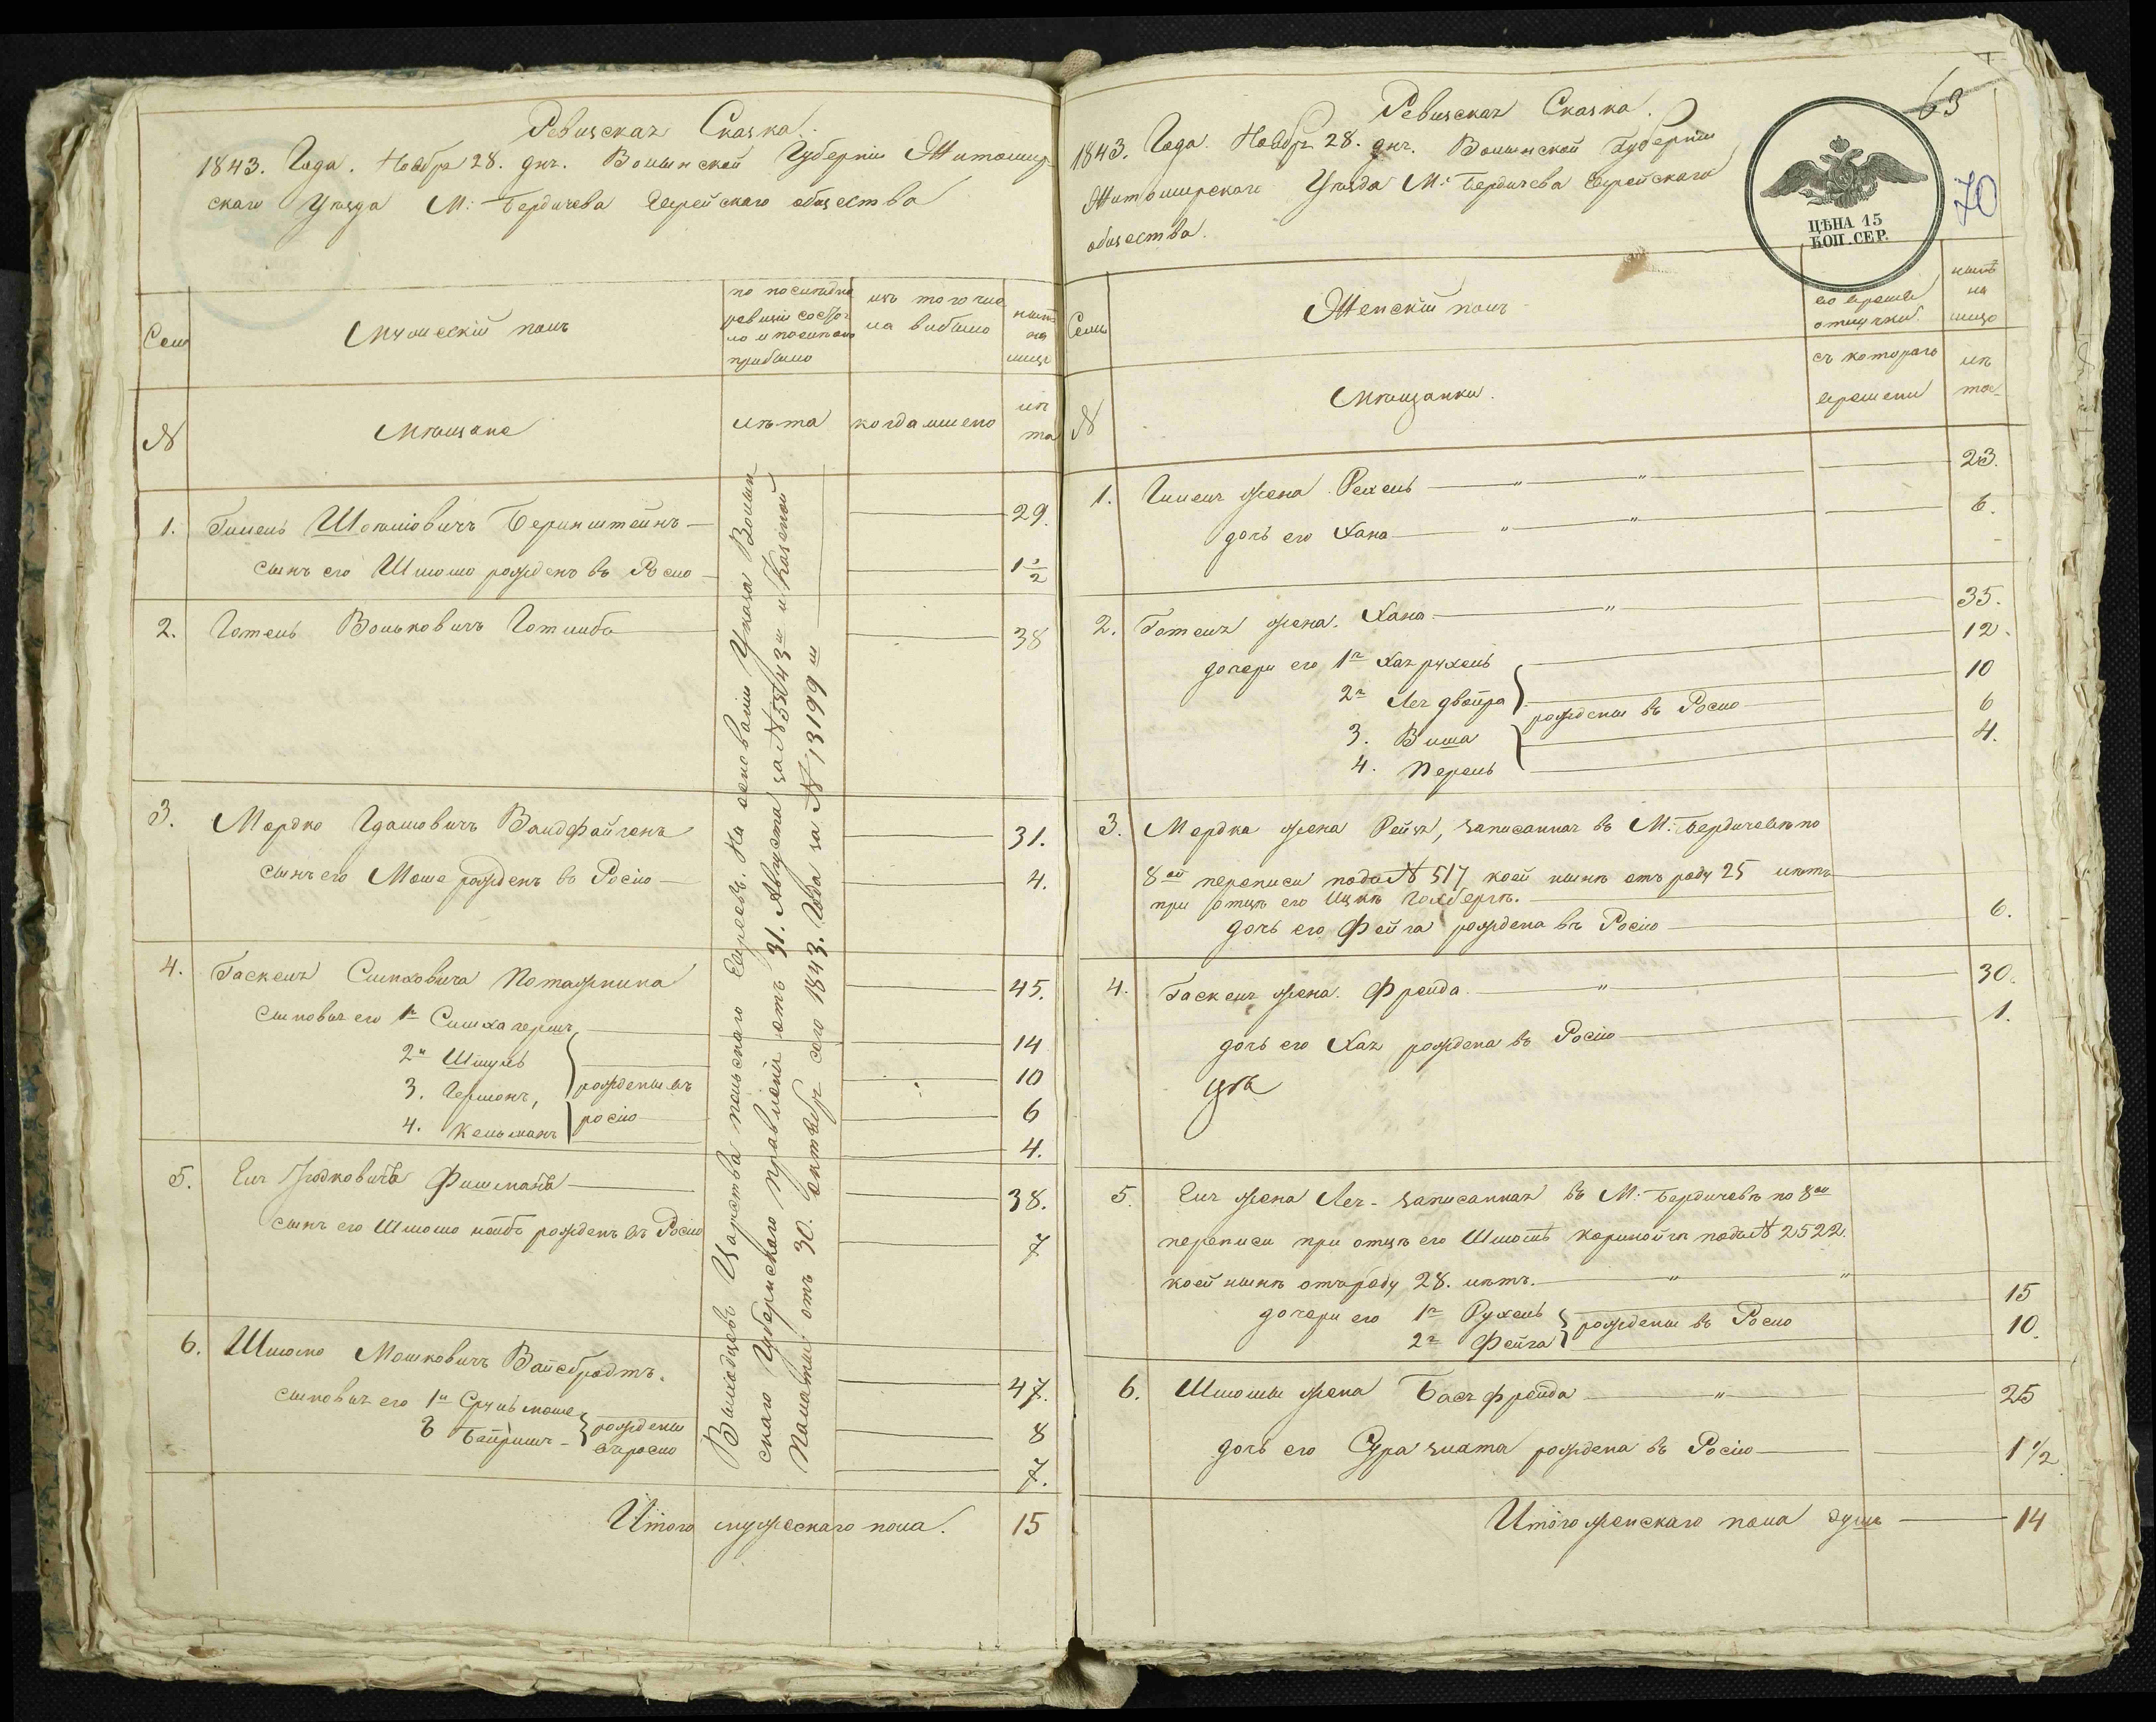 Ревизская Сказка.
1843. Года. Ноября 28. дня. Волынской Губернии Житомир
скаго Уезда М: Бердичева Еврейскаго общества
Сем
Мужескiй полъ
по последней
ревизiи состоя
ло и после того
прибыло
изъ того чис
ла выбыло
ныне
на
лицо
N
Мещане
лета
когда именно
ле
та
1. Гилель Шлюмовичъ Беринштейнъ 29.
сынъ его Шлюмо рожденъ въ Росiю 1 1/2
2. Готель Волькович Готлибъ 38
3. Мордко Идалiовичъ Вандфайгенъ 31.
сынъ его Моше рожденъ въ Росiю 4.
4. Гаскель Симховича Потажника 45.
сыновья его 1й Симха герш 14
2й Шмуль 10
3. Гершонъ, рождены въ 6
4. Кельманъ росiю 4.
5. Еля Юдковичъ Фишманъ 38.
сынъ его Шлюмо лейбъ рожденъ въ Росiю 7
6. Шлюмо Мошковичъ Вайсбродтъ. 47.
сыновья его 1й Сруль моше 8
2 Байришъ рождены въ росiю 7.
Итого мужескаго пола. 15
Выходцевъ Царства польскаго Евреевъ. На основанiи Указа Волын
скаго Губернскаго правленiя отъ 31. Августа за N 55743м и Казенной
Палаты отъ 30. октября сего 1843. года за N 13199м
63
70
Ревизская Сказка.
1843. Года. Ноября 28. дня. Волынской Губернии
Житомирскаго Уезда М: Бердичева Еврейскаго
общества.
ЦѢНА 15
КОП. СЕР.
Семь
Женскiй полъ
во время
отлучки.
ныне
на
лицо
N
Мещанки.
съ котораго
времени
ле
та
1. Гилеля жена Рехель 23.
дочь его Хана 6.
2. Готеля жена. Хана 35.
дочери его 1я Хая рухель 12.
2я Лея двойра 10
3. Вита рождены въ Росiю 6
4. Перель 4.
3. Мердка жена Рейзя, записанная въ М: Бердичеве по
8ой переписи подъ N 517 коей ныне отъ роду 25 летъ
при отце его Ицке Голберге.
дочь его Фейга рождена въ Росiю 6.
4. Гаскеля жена. Фрейда 30.
дочь его Хая рождена въ Росiю 1.
5. Еля жена Лея - записанная въ М: Бердичеве по 8ой
переписи при отце его Шлюме подъ N 2522.
коей ныне отъ роду 28. летъ.
дочери его 1я Рухель 15
2я Фейга рождены въ Росiю 10.
6. Шлюмы жена Бася фрейда 25
дочь его Сура злата рождена въ Росiю 1 1/2
Итого женскаго пола душъ 14